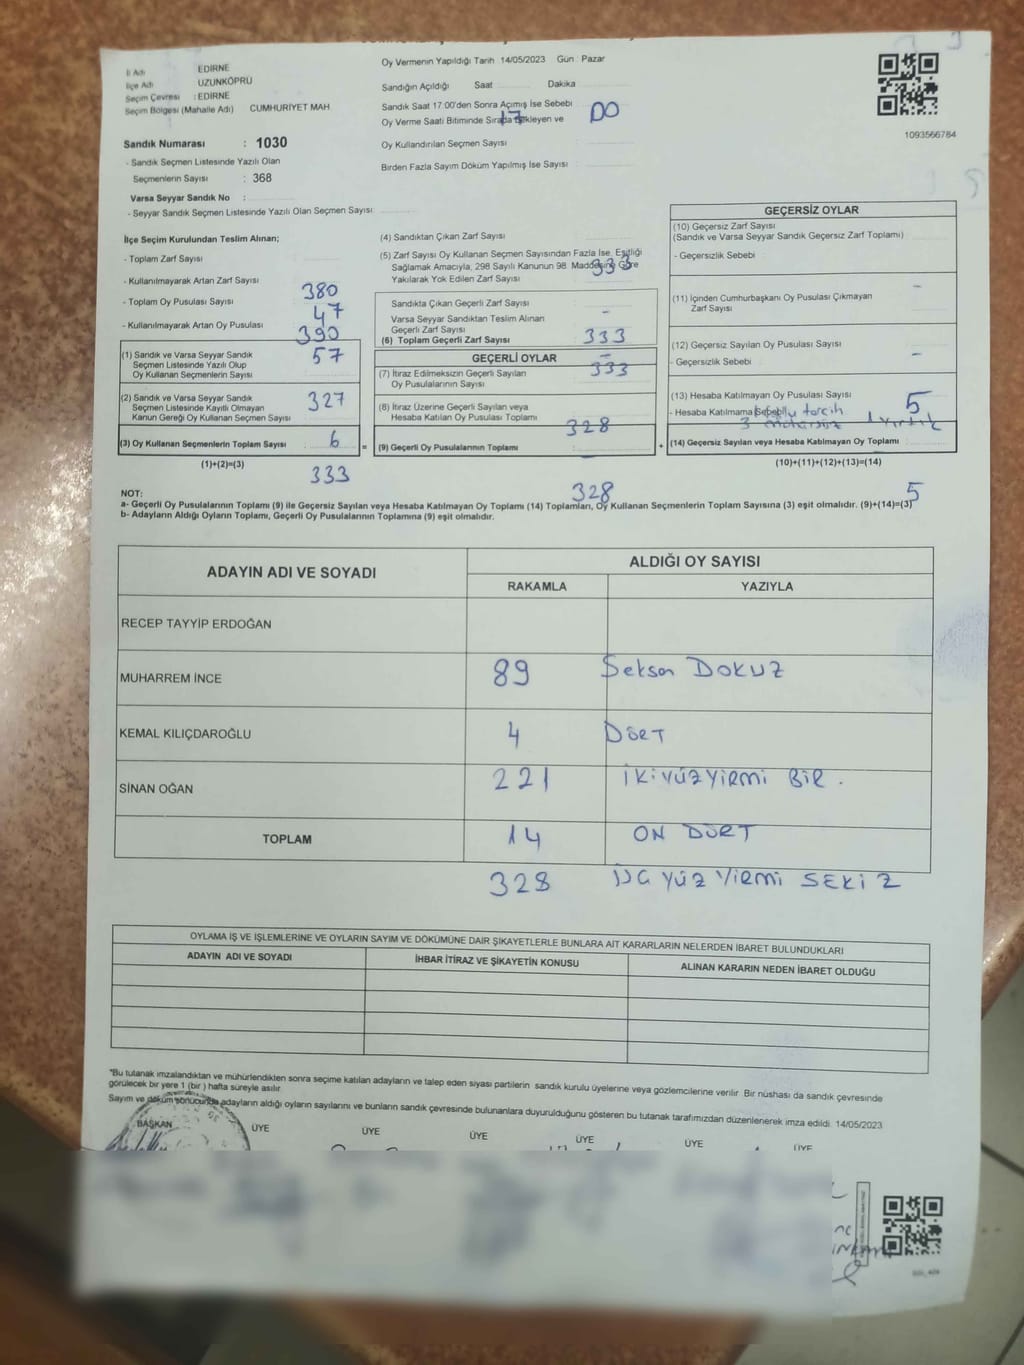 İl Adı EDİRNE
İlçe Adı UZUNKÖPRÜ
Seçim Çevresi : EDİRNE
Seçim Bölgesi (Mahalle Adı) CUMHURİYET MAH.
Sandık Numarası : 1030
- Sandık Seçmen Listesinde Yazılı Olan
Seçmenlerin Sayısı : 368
Varsa Seyyar Sandık No :
- Seyyar Sandık Seçmen Listesinde Yazılı Olan Seçmen Sayısı:
Oy Vermenin Yapıldığı Tarih 14/05/2023 Gün : Pazar
Sandığın Açıldığı Saat Dakika
Sandık Saat 17:00'den Sonra Açımış İse Sebebi
17 00
Oy Verme Saati Bitiminde Sırada Bekleyen ve
Oy Kullandırılan Seçmen Sayısı
Birden Fazla Sayım Döküm Yapılmış İse Sayısı
1093566784
İlçe Seçim Kurulundan Teslim Alınan;
- Toplam Zarf Sayısı
- Kullanılmayarak Artan Zarf Sayısı
380
- Toplam Oy Pusulası Sayısı
47
- Kullanılmayarak Artan Oy Pusulası
390
(1) Sandık ve Varsa Seyyar Sandık
Seçmen Listesinde Yazılı Olup
Oy Kullanan Seçmenlerin Sayısı
57
(2) Sandık ve Varsa Seyyar Sandık
Seçmen Listesinde Kayıtlı Olmayan
Kanun Gereği Oy Kullanan Seçmen Sayısı
327
(3) Oy Kullanan Seçmenlerin Toplam Sayısı 6 =
(1)+(2)=(3)
333
(4) Sandıktan Çıkan Zarf Sayısı
(5) Zarf Sayısı Oy Kullanan Seçmen Sayısından Fazla İse, Eşitliği
Sağlamak Amacıyla, 298 Sayılı Kanunun 98. Maddesine Göre
Yakılarak Yok Edilen Zarf Sayısı
333
Sandıkta Çıkan Geçerli Zarf Sayısı
Varsa Seyyar Sandıktan Teslim Alınan
Geçerli Zarf Sayısı
-
(6) Toplam Geçerli Zarf Sayısı 333
GEÇERLİ OYLAR -
(7) İtiraz Edilmeksizin Geçerli Sayılan
Oy Pusulalarının Sayısı
333
(8) İtiraz Üzerine Geçerli Sayılan veya
Hesaba Katılan Oy Pusulası Toplamı
328
(9) Geçerli Oy Pusulalarının Toplamı +
328
GEÇERSİZ OYLAR
(10) Geçersiz Zarf Sayısı
(Sandık ve Varsa Seyyar Sandık Geçersiz Zarf Toplamı)
- Geçersizlik Sebebi
-
(11) İçinden Cumhurbaşkanı Oy Pusulası Çıkmayan
Zarf Sayısı
-
(12) Geçersiz Sayılan Oy Pusulası Sayısı
- Geçersizlik Sebebi
-
(13) Hesaba Katılmayan Oy Pusulası Sayısı
- Hesaba Katılmama Sebebi tercih 5
3 mühürsüz 1 yırtık
(14) Geçersiz Sayılan veya Hesaba Katılmayan Oy Toplamı
(10)+(11)+(12)+(13)=(14)
5
NOT:
a- Geçerli Oy Pusulalarının Toplamı (9) ile Geçersiz Sayılan veya Hesaba Katılmayan Oy Toplamı (14) Toplamları, Oy Kullanan Seçmenlerin Toplam Sayısına (3) eşit olmalıdır. (9)+(14)=(3)
b- Adayların Aldığı Oyların Toplamı, Geçerli Oy Pusulalarının Toplamına (9) eşit olmalıdır.
ADAYIN ADI VE SOYADI ALDIĞI OY SAYISI
RAKAMLA YAZIYLA
RECEP TAYYİP ERDOĞAN
MUHARREM İNCE 89 Seksen DOKUZ
KEMAL KILIÇDAROĞLU 4 DÖRT
SİNAN OĞAN 221 İKİYÜZYİRMİ BİR.
TOPLAM 14 ON DÖRT
328 ÜÇ YÜZ YİRMİ SEKİZ
OYLAMA İŞ VE İŞLEMLERİNE VE OYLARIN SAYIM VE DÖKÜMÜNE DAİR ŞİKAYETLERLE BUNLARA AİT KARARLARIN NELERDEN İBARET BULUNDUKLARI
ADAYIN ADI VE SOYADI İHBAR İTİRAZ VE ŞİKAYETİN KONUSU ALINAN KARARIN NEDEN İBARET OLDUĞU
*Bu tutanak imzalandıktan ve mühürlendikten sonra seçime katılan adayların ve talep eden siyasi partilerin sandık kurulu üyelerine veya gözlemcilerine verilir. Bir nüshası da sandık çevresinde
görülecek bir yere 1 (bir ) hafta süreyle asılır.
Sayım ve döküm sonucunda adayların aldığı oyların sayılarını ve bunların sandık çevresinde bulunanlara duyurulduğunu gösteren bu tutanak tarafımızdan düzenlenerek imza edildi. 14/05/2023
BAŞKAN ÜYE ÜYE ÜYE ÜYE ÜYE ÜYE